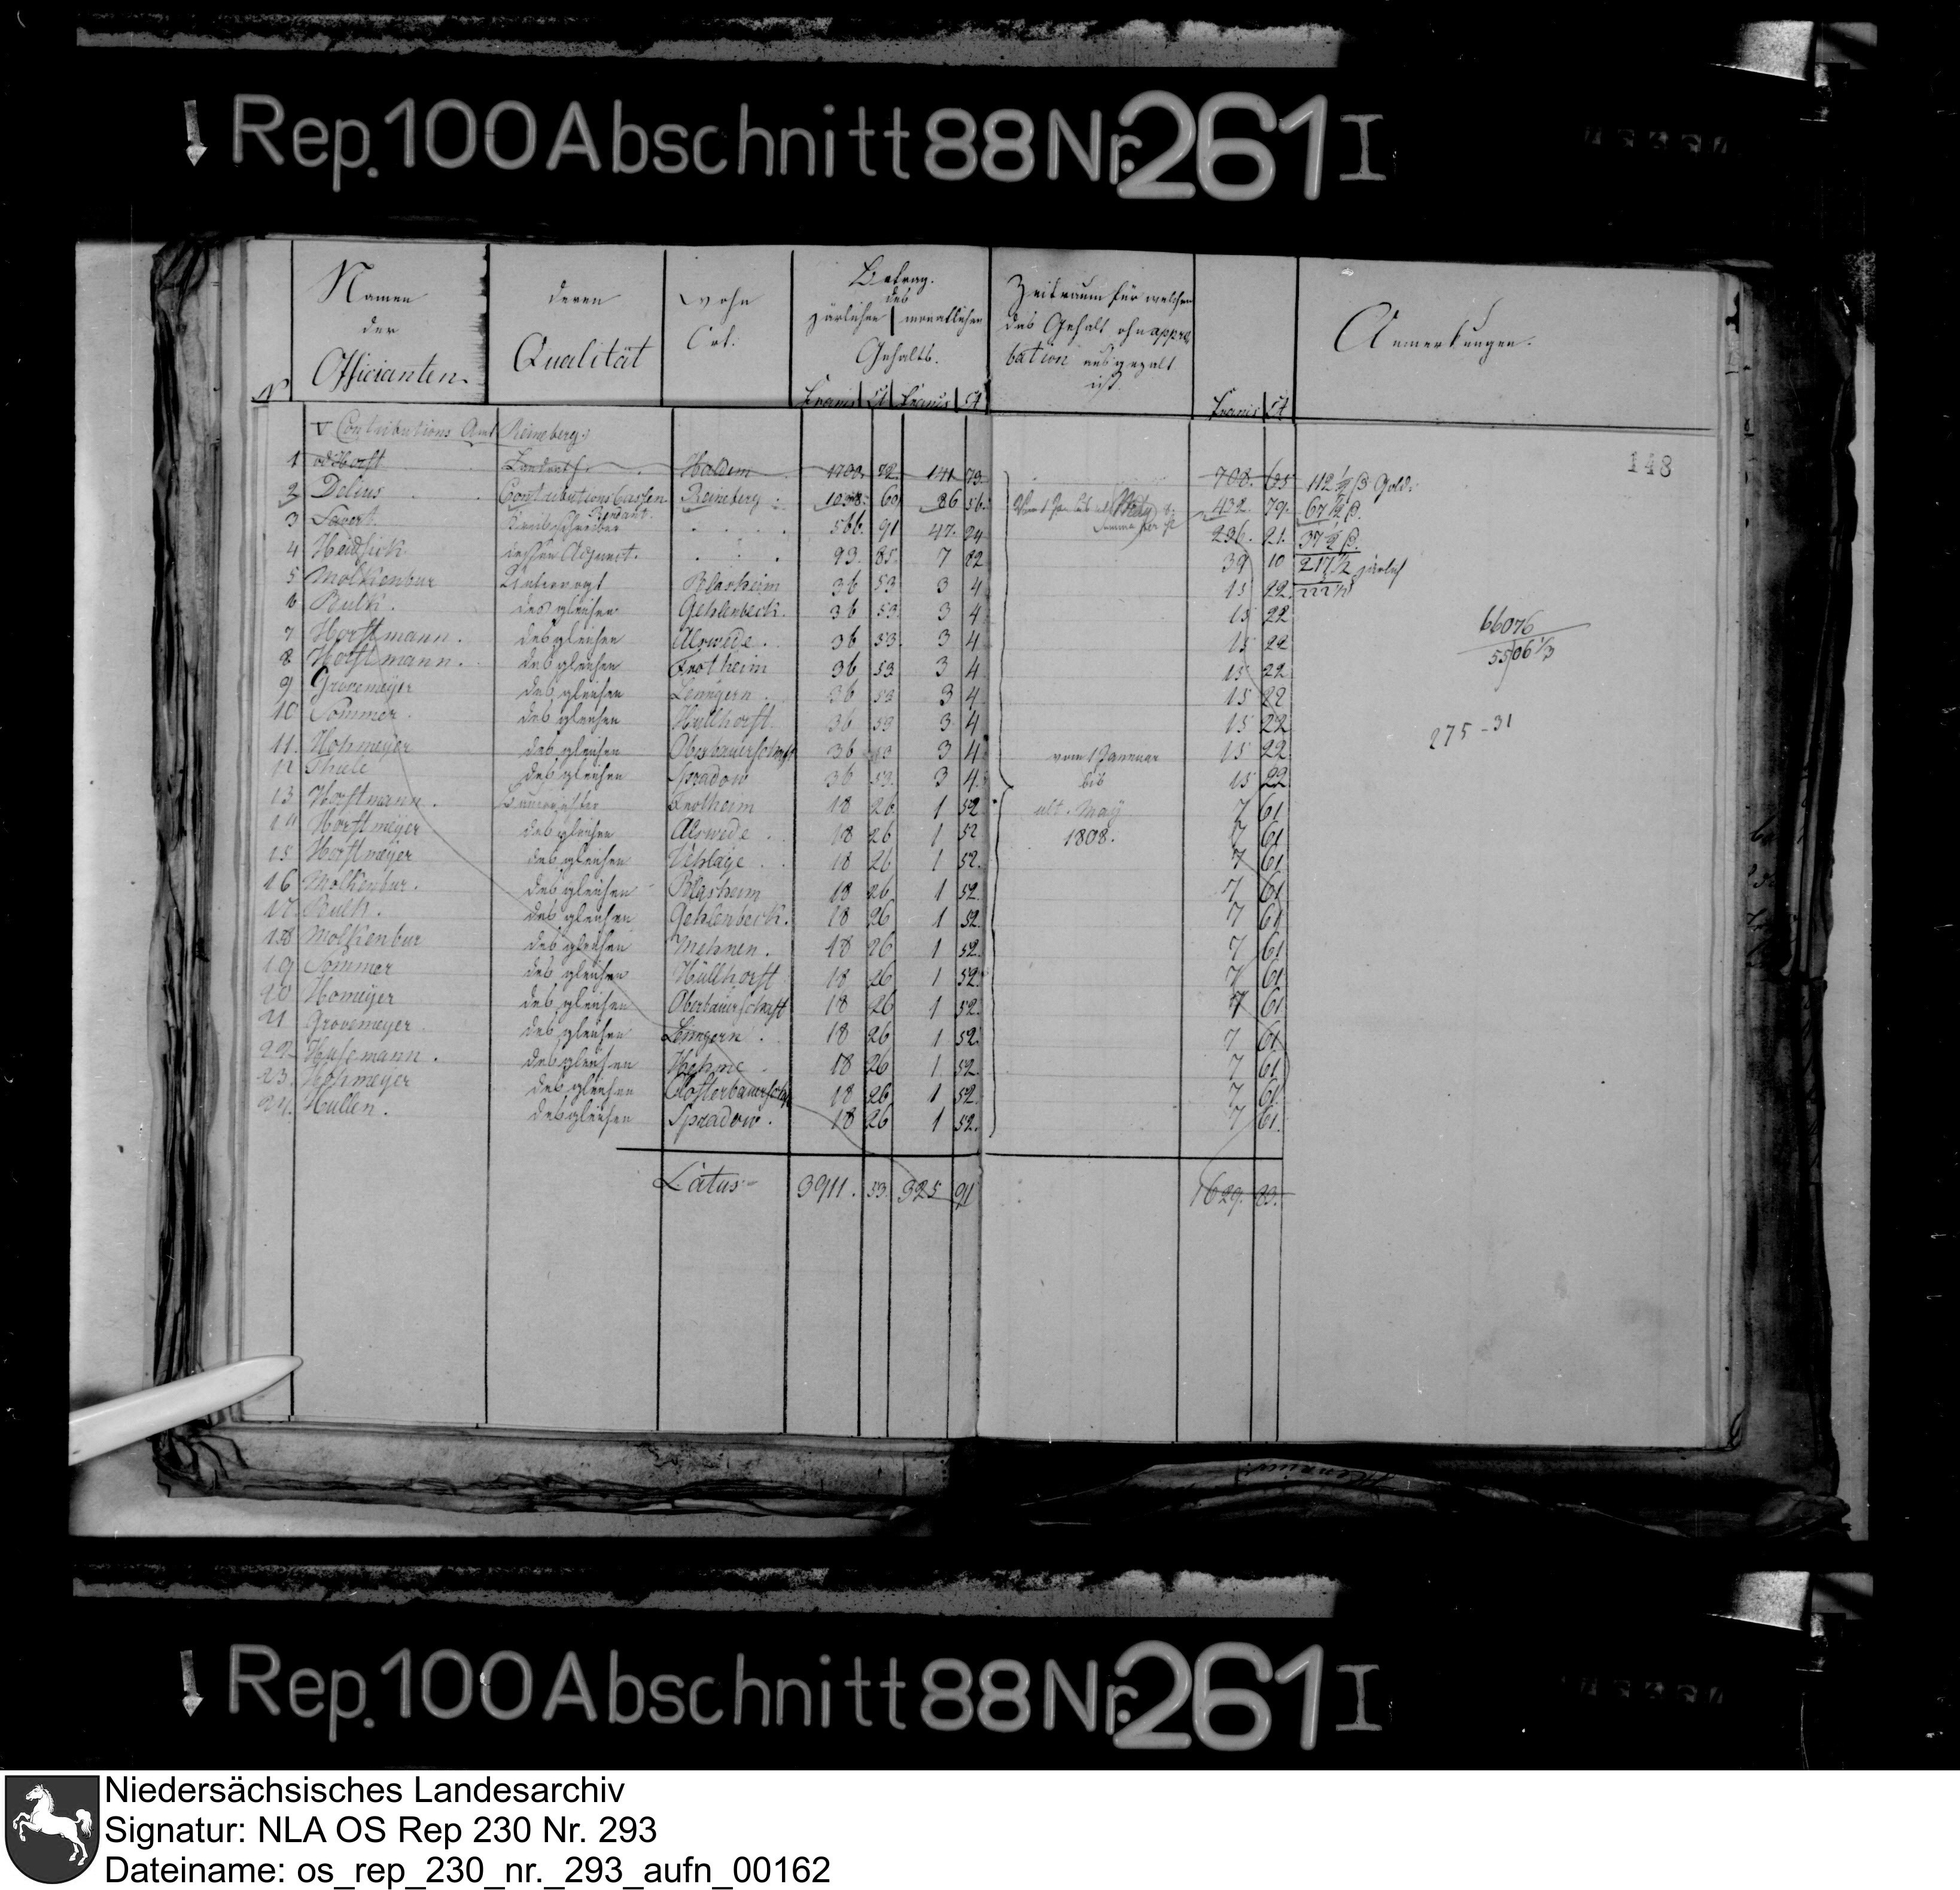 Rep. 100 Abschnitt 88 Nr. 261 I
Namen der Officianten
deren Qualität
Wohn Ort.
Betrag des
järlichen | monatlichen
Gehalts.
Francs | Ct | Francs | Ct
Zeitraum für welchen
das Gehalt ohn appro
bation ausgezalt
ist.
Francs | Ct
Anmerkungen.
No
148
V Contributions Amt Reineberg.
1 vdHorst Landrath Haldem 1700. 72. 141 73. 708. 65 112 1/2 Gold.
2 Delius Contributions Cassen Rendant. Reineberg 1038. 60 86 56. 432. 79. 67 1/2
3 Kreisschreiber 566. 91 47. 24 236. 21. 37 1/2
4 Heidsiek dessen Adjunct. 93. 85. 7 82 39 10 217 1/2 järlich
5 Molkenbur Untervogt Blasheim 36 53 3 4 15 22
6 Rulh. desgleichen Gehlenbeck. 36 53 3 4 15 22
7 Horstmann. desgleichen Alswede. 36 53. 3 4 15 22
8 Horstmann. desgleichen Frotheim 36 53 3 4 15 22
9 Grovemeyer desgleichen Lenngern 36 53 3 4 15 22
10 Sommer. desgleichen Hüllhorst. 36 53 3 4 15 22
11. Hohmeyer desgleichen Oberbauerschaft 36 53 3 4 vom 1 Januar 15 22
12 Thiele desgleichen Spradow 36 53. 3 4. bis 15 22
13. Horstmann. Frotheim 18 26 1 52 ult. May 7 61
14 Horstmeyer desgleichen Alswede. 18 26 1 52 1808. 7 61
15 Horstmeyer desgleichen Vehlage 18 26 1 52. 7 61
16 Molkenbur. desgleichen Blasheim 18 26 1 52. 7 61
17 Rulh. desgleichen Gehlenbeck. 18 26 1 52. 7 61
18 Molkenbur desgleichen Mehnen. 18 26 1 52. 7 61
19 Sommer desgleichen Hüllhorst 18 26 1 52. 7 61
20 Homeyer desgleichen Oberbauerschaft 18 26 1 52. 7 61
21 Grovemeyer desgleichen Lenngern. 18 26 1 52. 7 61
22 Husemann. desgleichen 18 26 1 52. 7 61
23. Hohmeyer desgleichen Closterbauerschaft 18 26 1 52. 7 61
24. Hullen. desgleichen Spradow. 18 26 1 52. 7 61.
66076
5506 1/3
275-31
Latus 3911. 53. 325 91 1629. 83.
Rep. 100 Abschnitt 88 Nr. 261 I
Niedersächsisches Landesarchiv
Signatur: NLA OS Rep 230 Nr. 293
Dateiname: os_rep_230_nr._293_aufn_00162